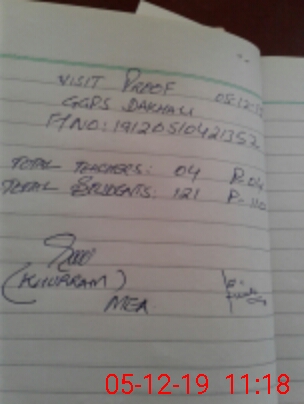 VISIT PROOF 05-12-19
GGPS DAKHALI
F/NO: 19120510421352
TOTAL TEACHERS: 04 P-04
TOTAL STUDENTS: 121 P-110
(KHURRAM)
MEA
05-12-19 11:18